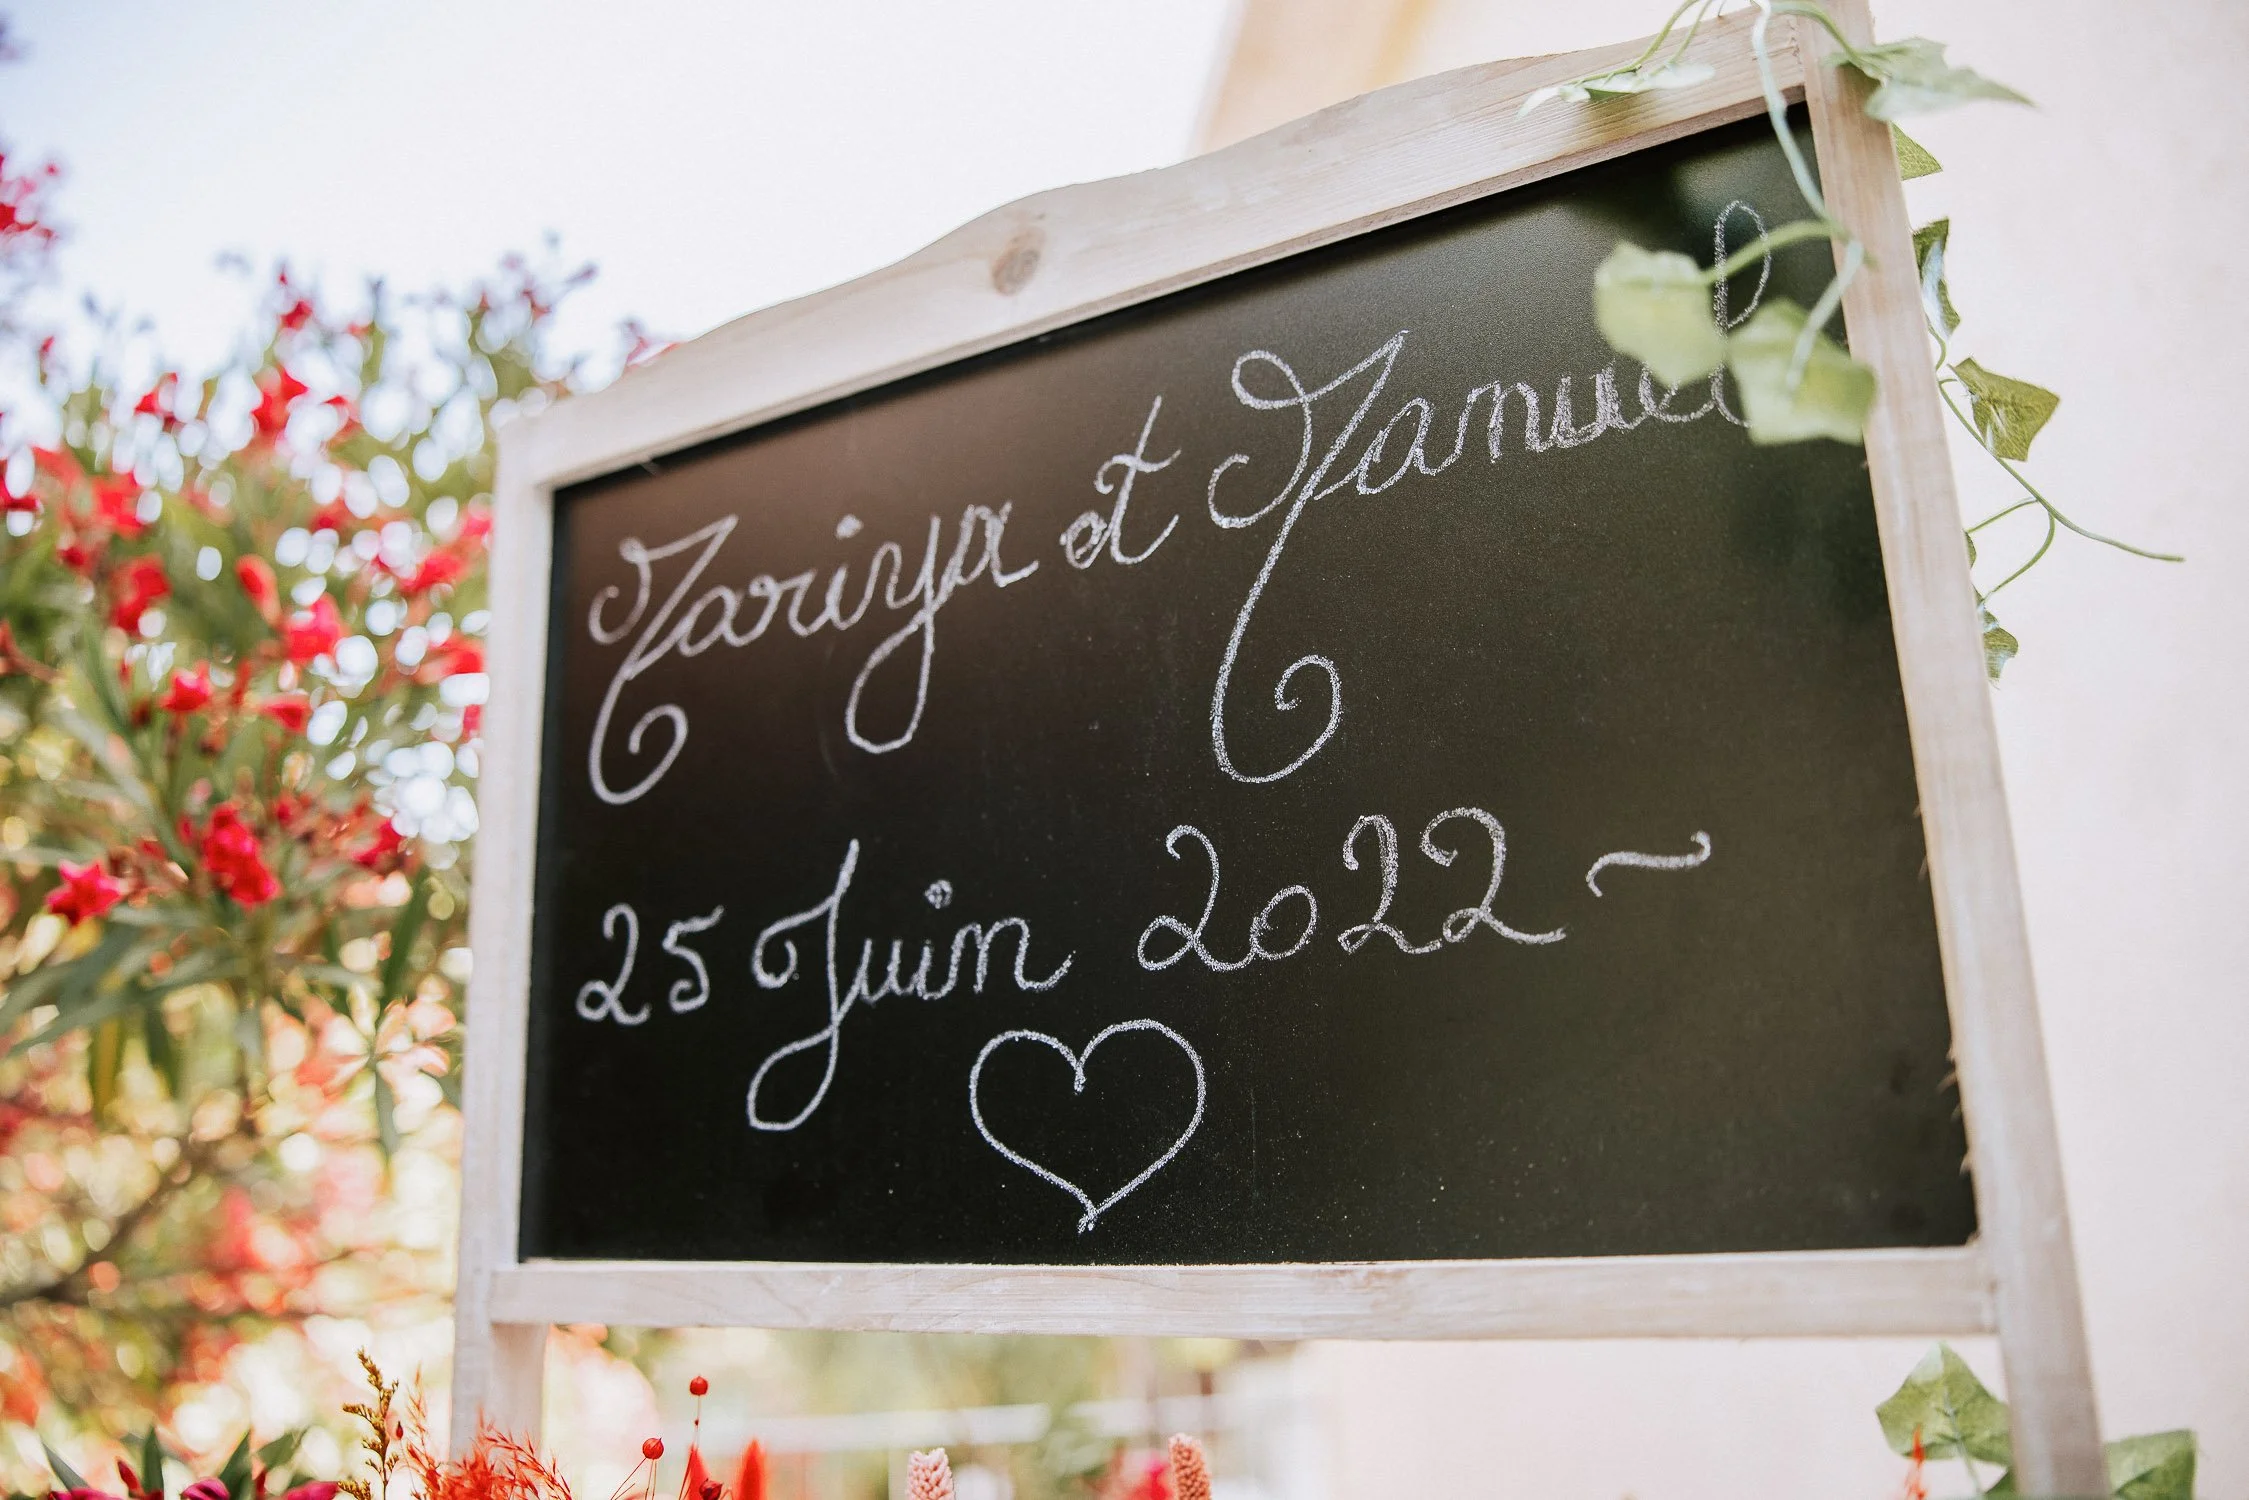 Sariya et Samuel
25 Juin 2022 ~